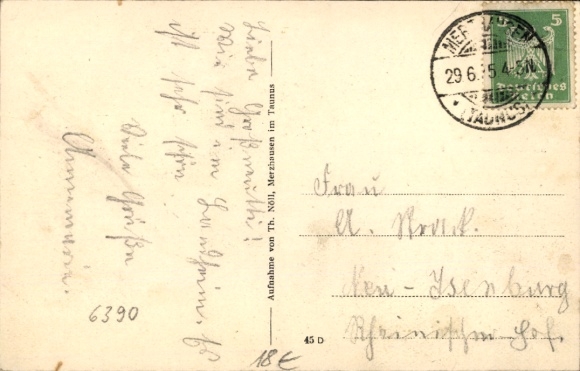 Liebe Großmutti!
Wir sind im Landheim. Es
ist sehr schön.
Viele Grüße
Annemarie.
6390
Aufnahme von Th. Nöll, Merzhausen im Taunus
45 D
18 €
MERZHAUSEN
29.6.25 4-5N
(TAUNUS)
5
Deutsches
Reich
Frau
A. Strack.
Neu-Isenburg
Rheinischer Hof.